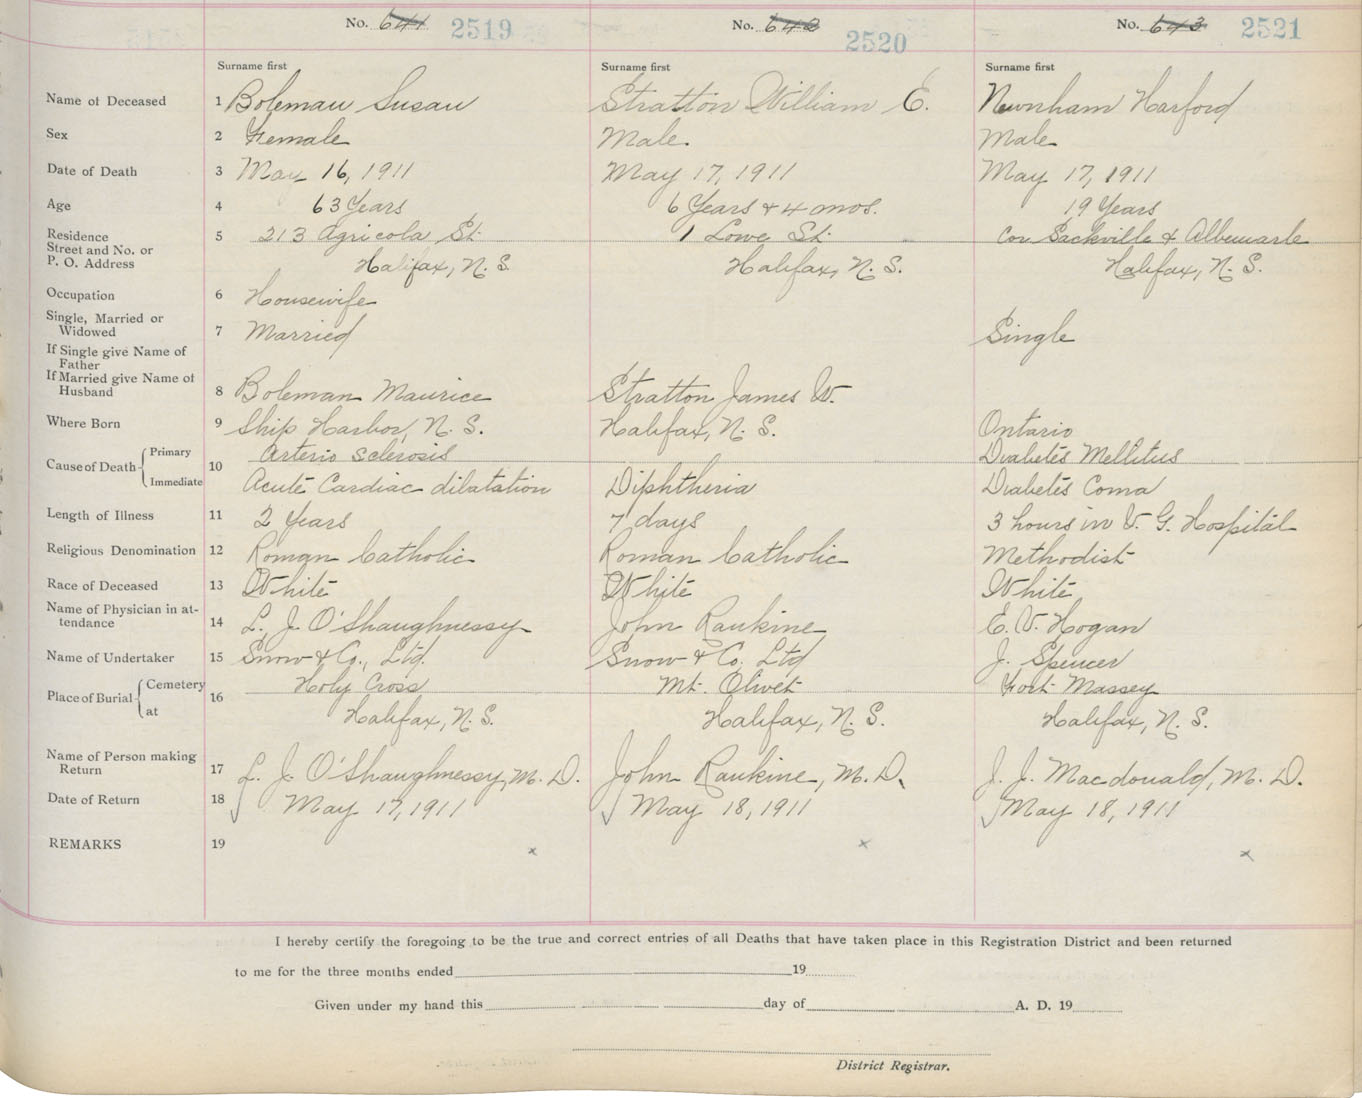 No. 641 2519 No. 642 2520 No. 643 2521
Surname first Surname first Surname first
Name of Deceased 1 Boleman Susan Stratton William E. Newnham Harford
Sex 2 Female Male. Male
Date of Death 3 May 16, 1911 May 17, 1911 May 17, 1911
Age 4 63 Years 6 Years & 4 mos. 19 Years
Residence 5 213 Agricola St. 1 Lowe St. Cor Sackville & Albemarle
Street and No. or
P. O. Address Halifax, N. S. Halifax, N. S. Halifax, N. S.
Occupation 6 Housewife
Single, Married or
Widowed 7 Married Single
If Single give Name of
Father
If Married give Name of
Husband 8 Boleman Maurice Stratton James W.
Where Born 9 Ship Harbor, N. S. Halifax, N. S. Ontario
Cause of Death Primary 10 Arterio Sclerosis Diabetes Mellitus
Immediate Acute Cardiac dilatation Diphtheria Diabetes Coma
Length of Illness 11 2 Years 7 days 3 hours in V. G. Hospital
Religious Denomination 12 Roman Catholic Roman Catholic Methodist
Race of Deceased 13 White White White
Name of Physician in at-
tendance 14 L. J. O'Shaughnessy John Rankine E. V. Hogan
Name of Undertaker 15 Snow & Co., Ltd. Snow & Co. Ltd J. Spencer
Place of Burial Cemetery 16 Holy Cross Mt. Olivet Fort Massey
at Halifax, N. S. Halifax, N. S. Halifax, N. S.
Name of Person making
Return 17 L. J. O'Shaughnessy, M. D. John Rankine, M. D. J. J. Macdonald, M. D.
Date of Return 18 May 17, 1911 May 18, 1911 May 18, 1911
REMARKS 19 x x x
I hereby certify the foregoing to be the true and correct entries of all Deaths that have taken place in this Registration District and been returned
to me for the three months ended 19
Given under my hand this day of A. D. 19
District Registrar.